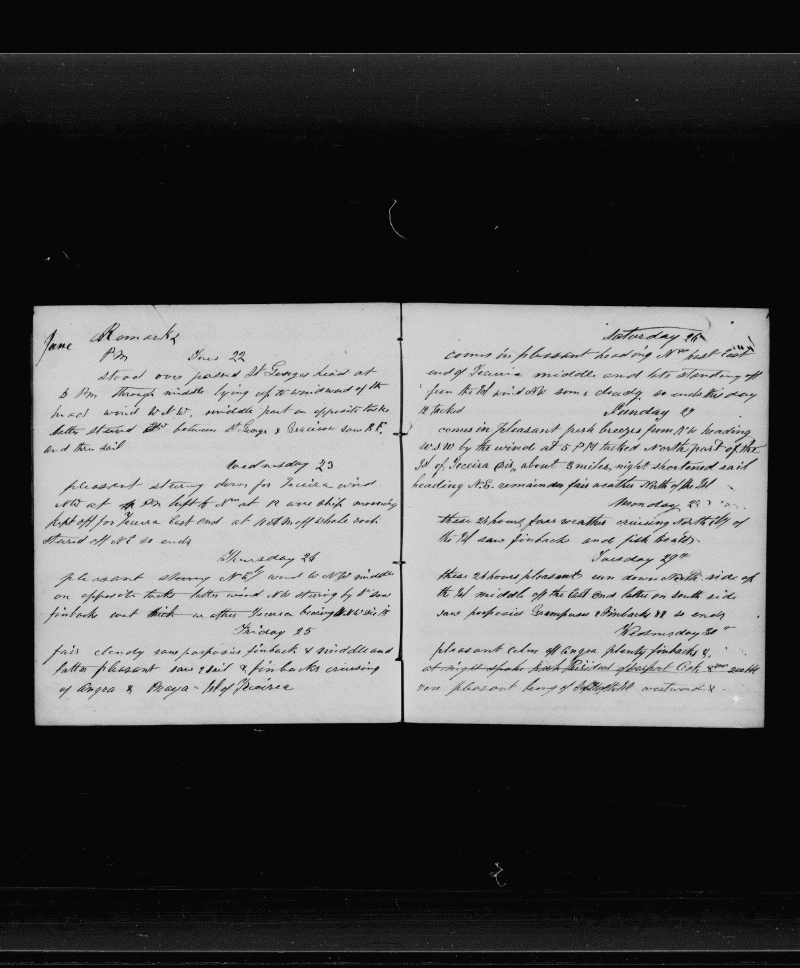 June Remarks
PM Tues 22
stood over passed St Georges head at
6 PM through middle lying up to windward of the
head wind W.N.W. middle part on opposite tacks
latter steered between St George & Graciosa saw
and three sail
Wednesday 23
pleasant steering down for Terceira wind
NW at PM luft to Nrd at 12 wore ship morning
kept off for Terceira East end at 10 AM off whale rock
steered off NE so ends
Thursday 24
pleasant steering N E wind W N W middle
on opposite tacks latter wind NW steering by saw
finback wet thick weather Terceira bearing W.N.W dis
Friday 25
fair cloudy saw porpoises finback & middle and
latter pleasant saw 2 sail & finbacks cruising
of Angra & Praya Isl of Terceira
Saturday 26
comes in pleasant heading Nrd past East
end of Terceira middle and late standing off
from the Isl wind NW some cloudy so ends this day
12 tacked
Sunday 27
comes in pleasant fresh breezes from N W heading
W.S.W by the wind at 5 PM tacked North part of the
Isl of Terceira dis, about 8 miles, night shortened sail
heading N.E. remainder fair weather North of the Isl
Monday 28
these 24 hours, fair weather cruising North of
the Isl saw finbacks and fish boats
Tuesday 29th
these 24 hours pleasant run down North side of
the Isl middle off the East End latter on south side
saw porpoises Grampuses & Finbacks && so ends
Wednesday 30th
pleasant calm off Angra plenty finbacks &,
at night spoke bark
ron pleasant of the Isl westward &